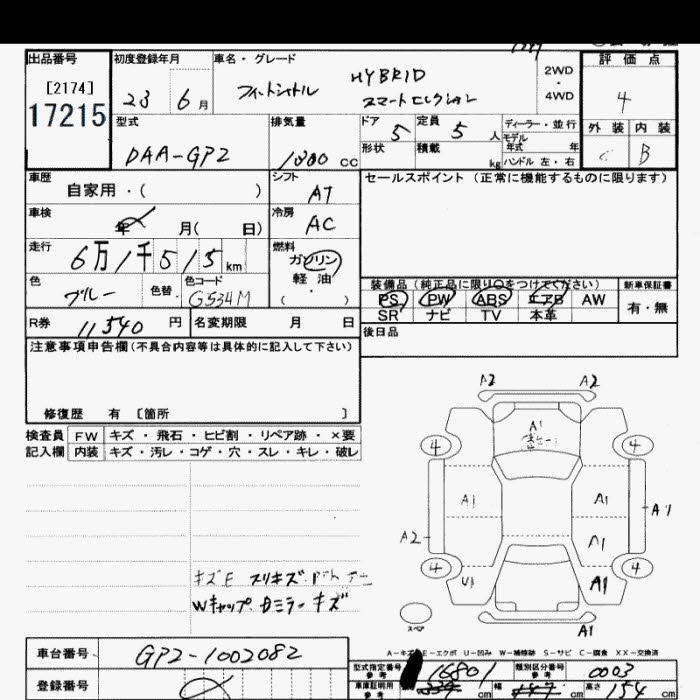 出品番号 初度登録年月 車名・グレード 評価点
[2174] HYBRID 2WD
17215 23 6月 フィットシャトル スマートセレクション ・4WD 4
型式 排気量 ドア 5 定員 5人 ディーラー・並行 外装 内装
モデル年式 年
DAA-GP2 1300cc 形状 積載 kg ハンドル 左・右 C B
車歴 シフト セールスポイント(正常に機能するものに限ります)
自家用・( ) AT
車検 年 月( 日) 冷房 AC
走行 6万1千515km 燃料 ガソリン
軽油
( )
色 ブルー 色替 色コード G534M
装備品(純正品に限り○をつけてください) 新車保証書
PS PW ABS エアB AW 有・無
SR ナビ TV 本革
R券 11540円 名変期限 月 日
後日品
注意事項申告欄(不具合内容等は具体的に記入して下さい)
修復歴 有 〔箇所 〕
検査員 FW キズ・飛石・ヒビ割・リペア跡・×要
記入欄 内装 キズ・汚レ・コゲ・穴・スレ・キレ・破レ
A2 A2
A1
4 4
A1 A1 A1
A2 A1
4 4
U1 A1
スペア A1
キズE スリキズ
Wキャップ Dミラーキズ
A-キズ E-エクボ U-凹み W-補修跡 S-サビ C-腐食 XX-交換済
車台番号 GP2-1002082
型式指定番号 参考 16801 類別区分番号 参考 0003
登録番号
車庫証明用 参考 cm 幅 cm 高さ 154cm